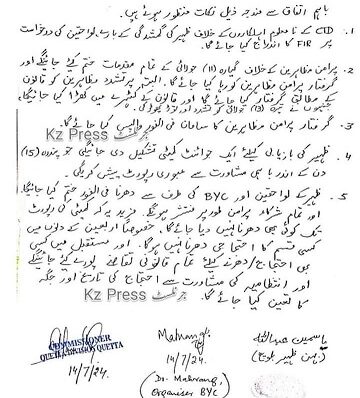 باہم اتفاق سے مندرجہ ذیل نکات منظور ہوئے ہیں۔
1. CTD کے نامعلوم اہلکاروں کے خلاف ظہیر کی گمشدگی کے بارے لواحقین کی درخواست
پر FIR کا اندراج کیا جائے گا۔
2. پرامن مظاہرین کے خلاف گیارہ (11) جولائی کے تمام مقدمات ختم کئے جائینگے اور
گرفتار پرامن مظاہرین کو رہا کیا جائے گا۔ البتہ پرتشدد مظاہرین کو قانون
کے مطابق گرفتار کیا جائے گا اور قانون کے کٹہرے میں کھڑا کیا جائیگا۔
جولائی کو تشدد
3. گرفتار پرامن مظاہرین کا سامان فی الفور واپس کیا جائے گا۔
Kz Press جرنلسٹ
4. ظہیر کی بازیابی کیلئے ایک جوائنٹ کمیٹی تشکیل دی جائیگی جو پندرہ (15)
دن کے اندر باہمی مشاورت سے عبوری رپورٹ پیش کریگی۔
5. ظہیر کے لواحقین اور BYC کی طرف سے دھرنا فی الفور ختم کیا جائیگا
اور تمام شرکاء پرامن طور پر منتشر ہونگے۔ مزید یہ کہ کمیٹی کی رپورٹ
تک کوئی بھی دھرنا نہیں دیا جائے گا۔ خصوصاً اربعین کے دنوں میں
کسی قسم کا احتجاجی دھرنا نہیں ہوگا۔ اور مستقبل میں کسی
بھی احتجاج/دھرنے کیلئے تمام قانونی تقاضے پورے کئے جائینگے
اور انتظامیہ کی مشاورت سے احتجاج کی تاریخ اور جگہ
کا تعین کیا جائے گا۔
Kz Press جرنلسٹ
COMMISSIONER
QUETTA DIVISION QUETTA
14/7/24.
Mahrang
14/7/24
(Dr. Mahrang,
Organiser BYC)
یاسمین عبداللہ
(بہن ظہیر بلوچ)